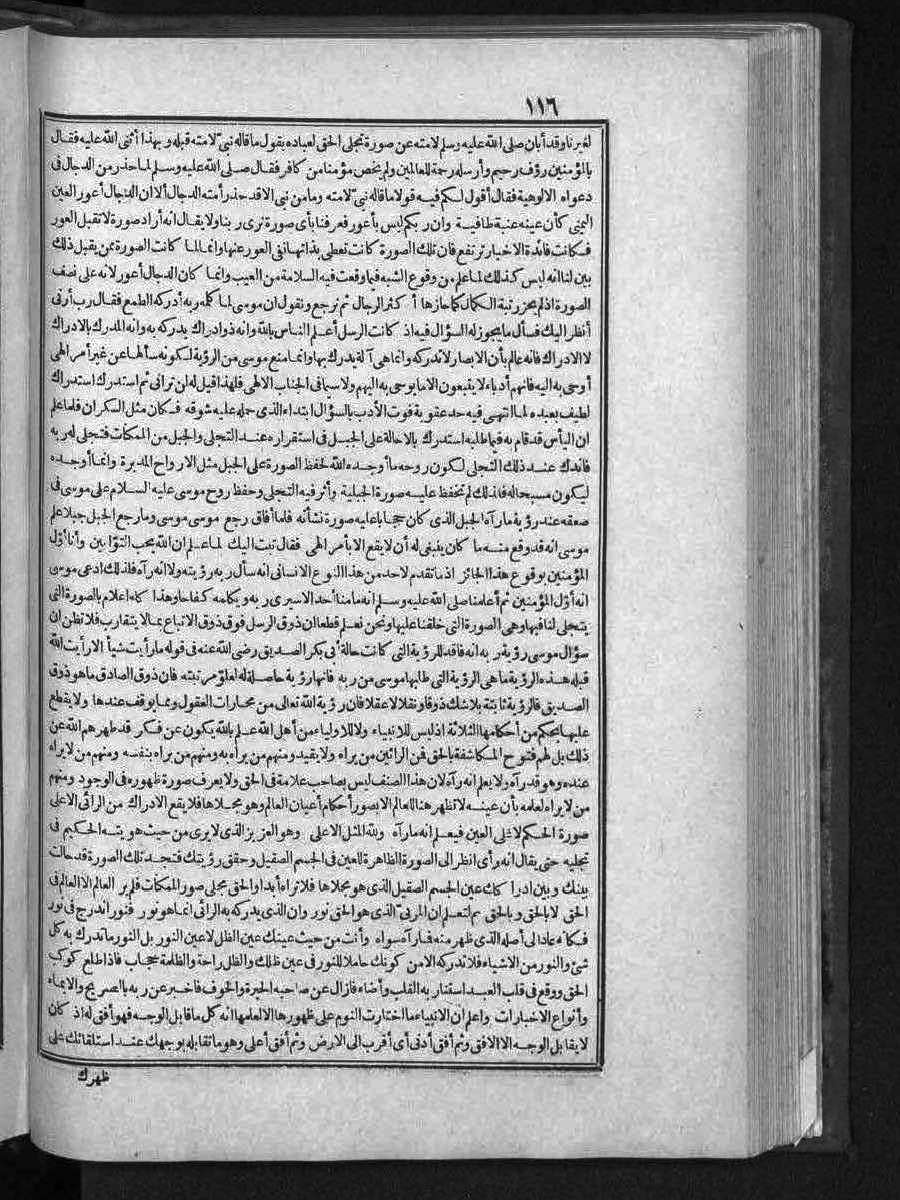 ١١٦
لغيرنا وقد أبان صلى الله عليه وسلم لامته عن صورة تجلى الحق لعباده بقول ما قاله نبي لامته قبله وبهذا أثنى الله عليه فقال
بالمؤمنين رؤف رحيم وأرسله رحمة للعالمين ولم يخص مؤمنا من كافر فقال صلى الله عليه وسلم لما حذر من الدجال فى
دعواه الالوهية فقال أقول لكم فيه قولا ما قاله نبى لامته وما من نبى الا قد حذر أمته الدجال ألا ان الدجال أعور العين
اليمنى كأن عينه عنبة طافية وان ربكم ليس بأعور فعرفنا بأى صورة نرى ربنا ولا يقال انه أراد صورة لا تقبل العور
فكانت فائدة الاخبار ترتفع فان تلك الصورة كانت تعطى بذاتها نفى العور عنها وانما لما كانت الصورة ممن يقبل ذلك
بين لنا انه ليس كذلك لما علم من وقوع الشبه فيما وقعت فيه السلامة من العيب وانما كان الدجال أعور لانه على نصف
الصورة اذ لم يحز رتبة الكمال كما حازها أكثر الرجال ثم نرجع ونقول ان موسى لما كلمه ربه أدركه الطمع فقال رب أرنى
أنظر اليك فسأل ما يجوز له السؤال فيه اذ كانت الرسل أعلم الناس بالله وانه ذو ادراك يدركه به وانه المدرك بالادراك
لا الادراك فانه عالم بأن الابصار لا تدركه وانما هى آلة يدرك بها وانما منع موسى من الرؤية لكونه سألها عن غير أمر الهى
أوحى به اليه فانهم أدباء لا يتبعون الا ما يوحى به اليهم ولا سيما فى الجناب الالهى فلهذا قيل له لن ترانى ثم استدرك استدراك
لطيف بعبده لما انتهى فيه حد عقوبة فوت الأدب بالسؤال ابتداء الذى حمله عليه شوقه فكان مثل السكران فلما علم
ان اليأس قد قام به فيما طلبه استدرك بالاحالة على الجبل فى استقراره عند التجلى والجبل من الممكنات فتجلى له ربه
فاندك عند ذلك التجلى لكون روحه ما أوجده الله لحفظ الصورة على الجبل مثل الارواح المدبرة وانما أوجده
ليكون مسبحا له فلذلك لم تحفظ عليه صورة الجبلية وأثر فيه التجلى وحفظ روح موسى عليه السلام على موسى فى
صعقه عند رؤية ما رآه الجبل الذى كان حجابا عليه صورة نشأته فلما أفاق رجع موسى موسى وما رجع الجبل جبلا علم
موسى انه قد وقع منه ما كان ينبغى له أن لا يقع الا بأمر الهى فقال تبت اليك لما علم ان الله يحب التوّابين وأنا أوّل
المؤمنين بوقوع هذا الجائز اذ ما تقدم لاحد من هذا النوع الانسانى انه سأل ربه رؤيته ولا انه رآه فلذلك ادعى موسى
انه أوّل المؤمنين ثم أعلمنا صلى الله عليه وسلم انه ما منا أحد الا سيرى ربه ويكلمه كفاحا وهذا كله اعلام بالصورة التى
يتجلى لنا فيها وهى الصورة التى خلقنا عليها ونحن نعلم قطعا ان ذوق الرسل فوق ذوق الاتباع بما لا يتقارب فلا تظن ان
سؤال موسى رؤية ربه انه فاقد للرؤية التى كانت حالة أبى بكر الصديق رضى الله عنه فى قوله ما رأيت شيأ الا رأيت الله
قبله هذه الرؤية ما هى الرؤية التى طلبها موسى من ربه فانها رؤية حاصلة له لعلوّ مرتبته فان ذوق الصادق ما هو ذوق
الصديق فالرؤية ثابتة بلا شك ذوقا ونقلا لا عقلا فان رؤية الله تعالى من محارات العقول ومما يوقف عندها ولا يقطع
عليها بحكم من أحكامها الثلاثة اذ ليس للانبياء ولا للاولياء من أهل الله علم بالله يكون عن فكر قد طهرهم الله عن
ذلك بل لهم فتوح المكاشفة بالحق فمن الرائين من يراه ولا يقيد ومنهم من يراه به ومنهم من يراه بنفسه ومنهم من لا يراه
عنده وهو قد رآه ولا يعلم انه رآه لان هذا الصنف ليس بصاحب علامة فى الحق ولا يعرف صورة ظهوره فى الوجود ومنهم
من لا يراه لعلمه بأن عينه لا تظهر هنا للعالم الا بصور أحكام أعيان العالم وهو مجلاها فلا يقع الادراك من الرائى الا على
صورة الحكم لا على العين فيعلم انه ما رآه ولله المثل الاعلى وهو العزيز الذى لا يرى من حيث هويته الحكيم فى
تجليه حتى يقال انه رأى انظر الى الصورة الظاهرة للعين فى الجسم الصقيل وحقق رؤيتك فتجد تلك الصورة قد حالت
بينك وبين ادراكك عين الجسم الصقيل الذى هو مجلاها فلا تراه أبدا والحق مجلى صور الممكنات فلم ير العالم الا العالم فى
الحق لا بالحق وبالحق ثم لتعلم ان المرئىّ الذى هو الحق نور وان الذى يدركه به الرائى انما هو نور فنور اندرج فى نور
فكانه عاد الى أصله الذى ظهر منه فما رآه سواه وأنت من حيث عينك عين الظل لا عين النور بل النور ما تدرك به كل
شئ والنور من الاشياء فلا تدركه الا من كونك حاملا للنور فى عين ظلك والظل راحة والظلمة حجاب فاذا طلع كوكب
الحق ووقع فى قلب العبد استنار به القلب وأضاء فأزال عن صاحبه الحيرة والخوف فاخبر عن ربه بالصريح والايماء
وأنواع الاخبارات واعلم ان الانبياء ما اختارت النوم على ظهورها الا لعلمها انه كل ما قابل الوجه فهو أفق له اذ كان
لا يقابل الوجه الا الافق وثم أفق أدنى أى أقرب الى الارض وثم أفق أعلى وهو ما تقابله بوجهك عند استلقائك على
ظهرك